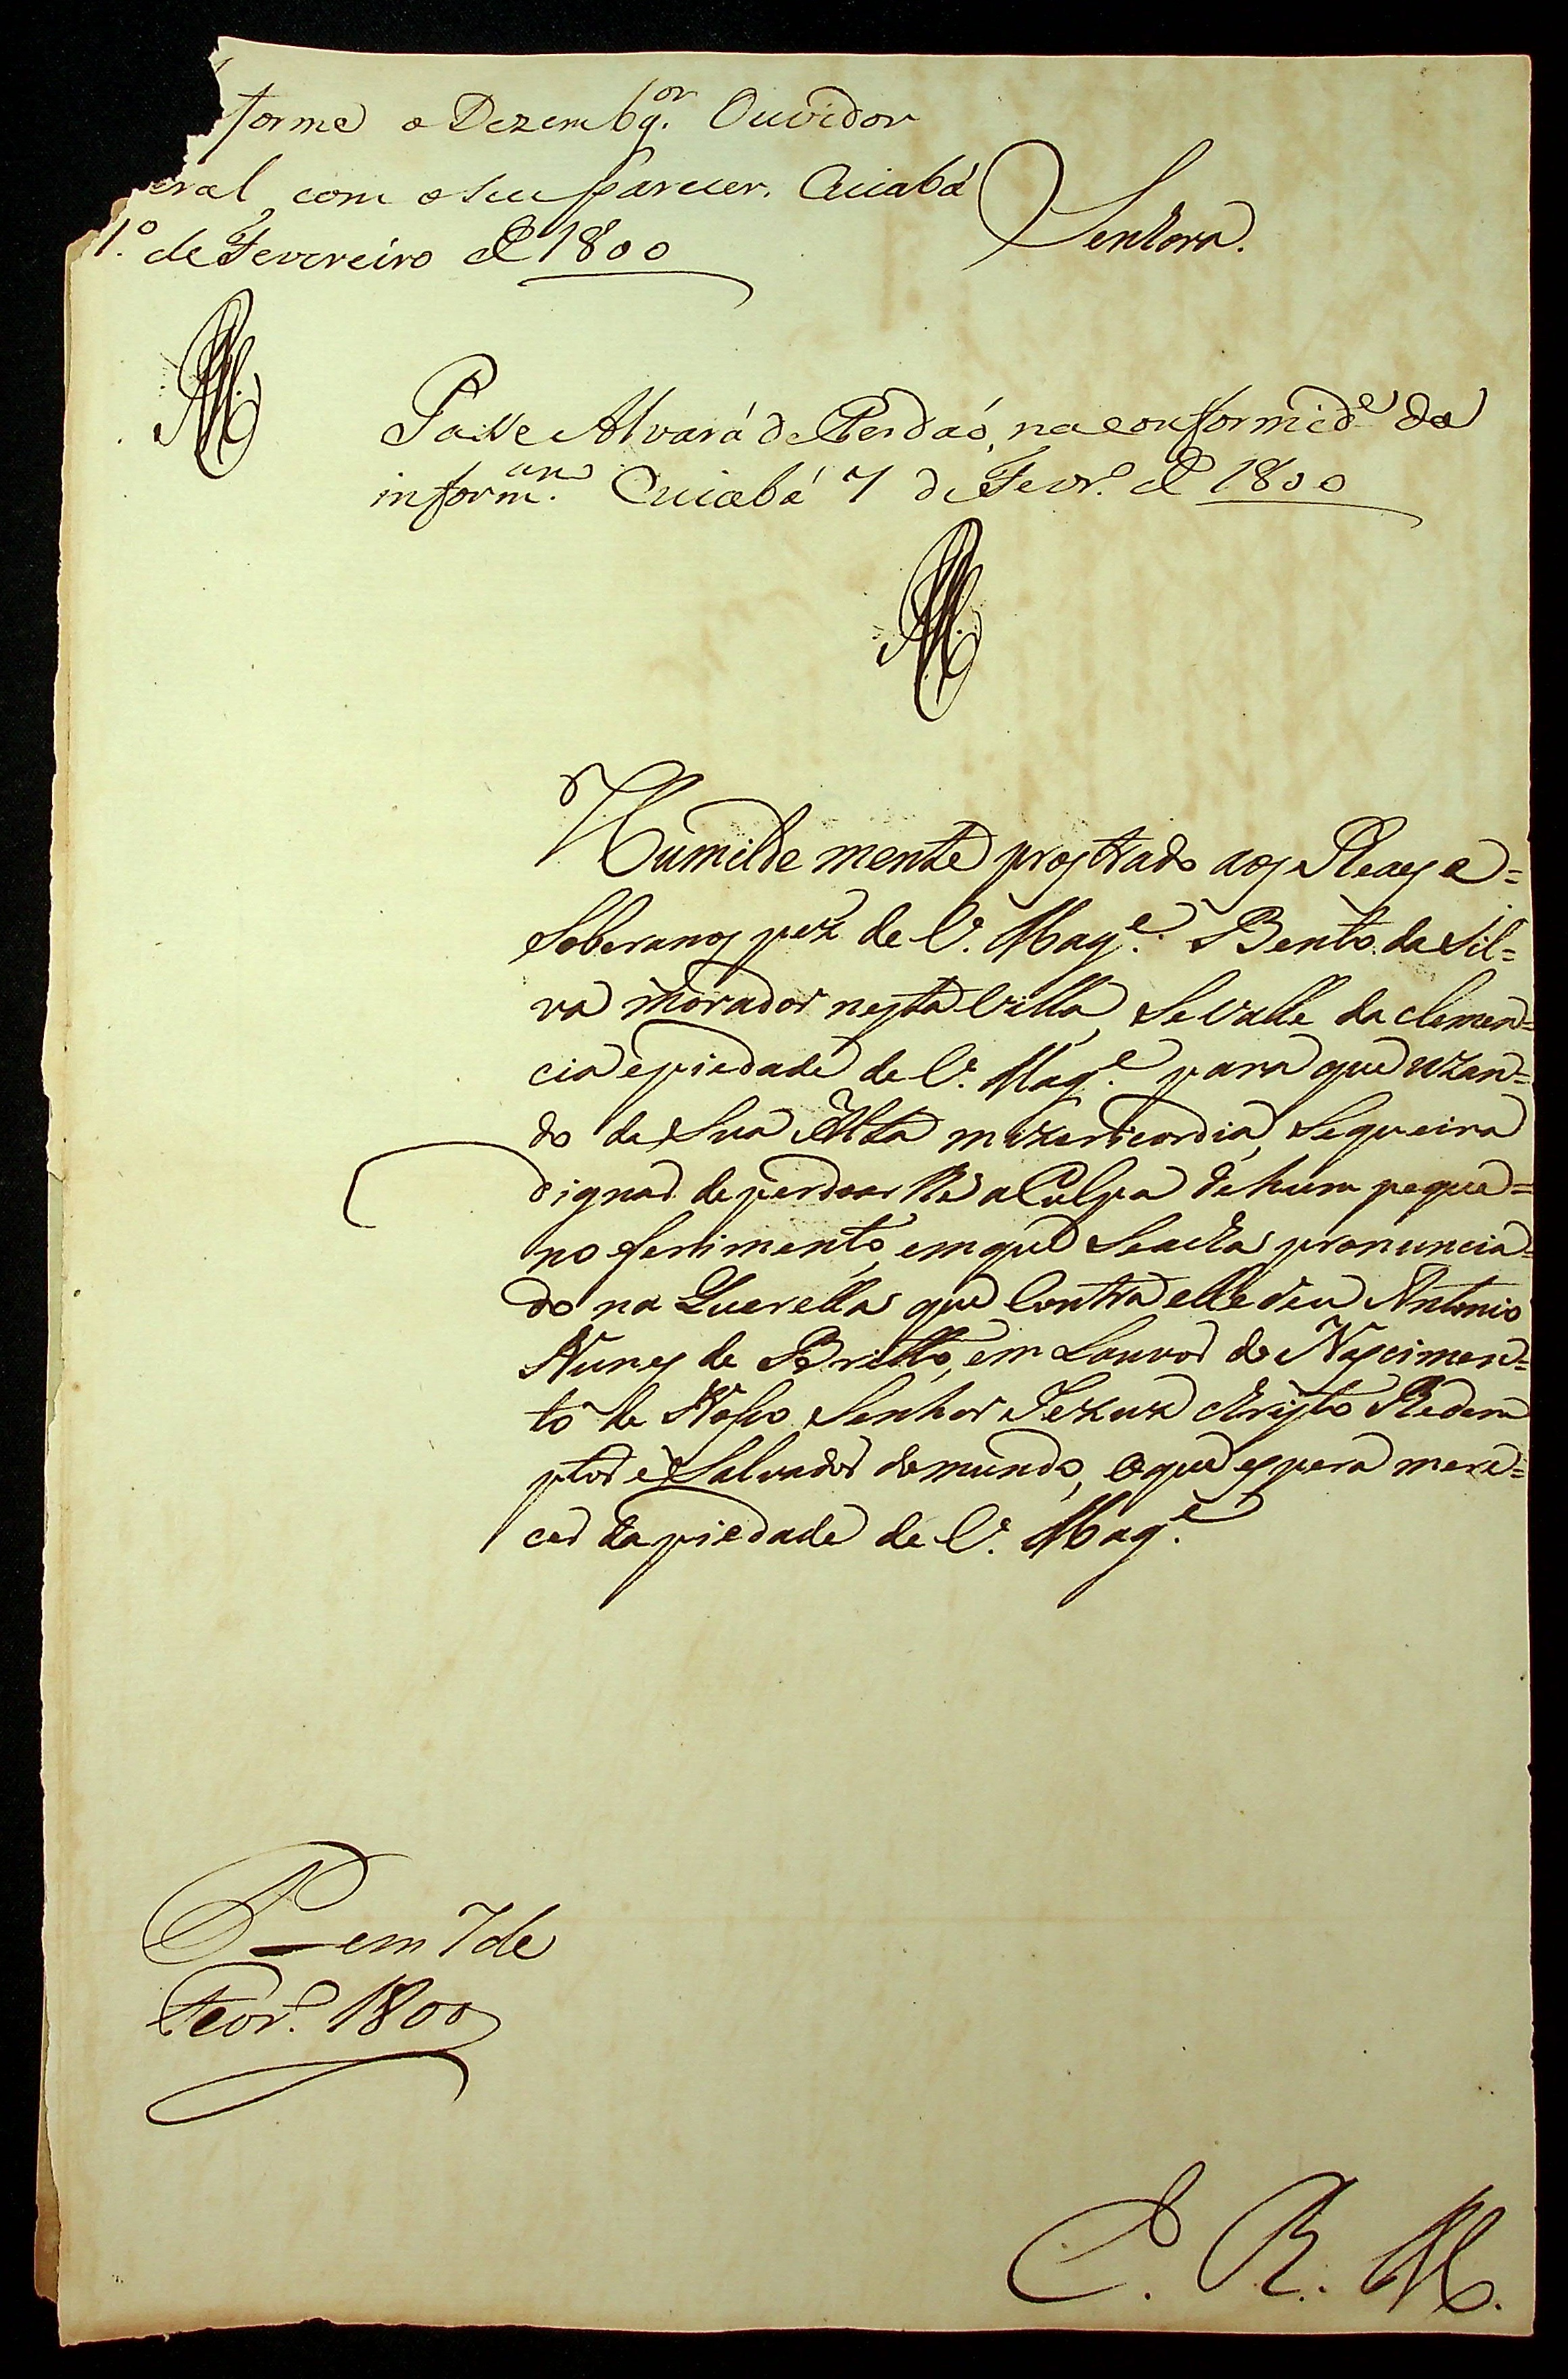 forme o Dezembg.or Ouvidor
eral, com o seu parecer. Cuiabá
1.º de Fevereiro de 1800
Senhora.
Passe Alvará de Perdaõ, na conformid.e da
inform.am Cuiabá 7 de Fevr.o de 1800
Humilde mente prostrado aos Reaes e=
Soberanos pez de V. Mag.e Bento da Sil=
va morador nesta Villa, Se valle da clemen=
cia e piedade de V. Mag.e para que uzan=
do da Sua Alta mizericordia, Se queira
dignar de perdoar lhe a Culpa de hum peque=
no ferimento, em que Se acha pronuncia=
do na Querella que Contra elle deu Antonio
Nunes de Britto, em Louvor do Nascimen=
to de Nosso Senhor Jezuz Christo Redem
ptor e Salvador do mundo, o que espera mere=
cer da piedade de V. Mag.e
P em 7 de
Fevr.o 1800
E. R. M.